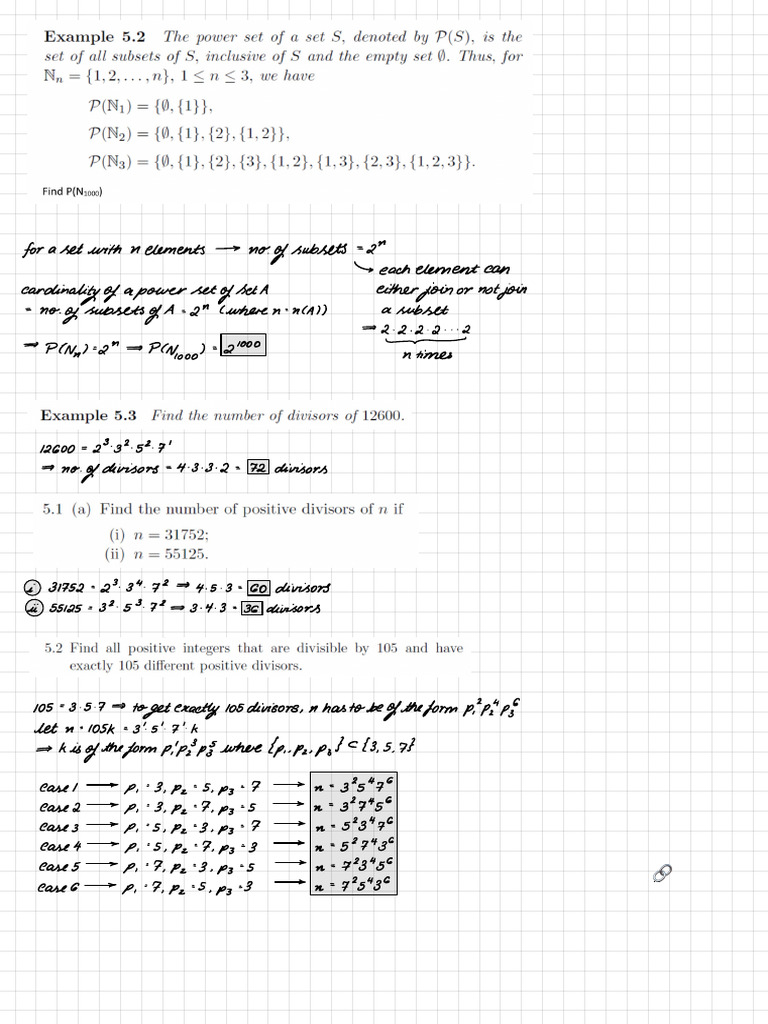 Example 5.2 The power set of a set S, denoted by P(S), is the
set of all subsets of S, inclusive of S and the empty set ∅. Thus, for
ℕₙ = {1, 2, . . . , n}, 1 ≤ n ≤ 3, we have
P(ℕ₁) = {∅, {1}},
P(ℕ₂) = {∅, {1}, {2}, {1, 2}},
P(ℕ₃) = {∅, {1}, {2}, {3}, {1, 2}, {1, 3}, {2, 3}, {1, 2, 3}}.
Find P(N₁₀₀₀)
for a set with n elements → no. of subsets = 2ⁿ
↳ each element can
either join or not join
a subset
⇒ 2·2·2·2···2
n times
cardinality of a power set of set A
= no. of subsets of A = 2ⁿ (where n = n(A))
⇒ P(Nₙ) = 2ⁿ ⇒ P(N₁₀₀₀) = 2¹⁰⁰⁰
Example 5.3 Find the number of divisors of 12600.
12600 = 2³·3²·5²·7¹
⇒ no. of divisors = 4·3·3·2 = 72 divisors
5.1 (a) Find the number of positive divisors of n if
(i) n = 31752;
(ii) n = 55125.
(i) 31752 = 2³·3⁴·7² ⇒ 4·5·3 = 60 divisors
(ii) 55125 = 3²·5³·7² ⇒ 3·4·3 = 36 divisors
5.2 Find all positive integers that are divisible by 105 and have
exactly 105 different positive divisors.
105 = 3·5·7 ⇒ to get exactly 105 divisors, n has to be of the form p₁²p₂⁴p₃⁶
let n = 105k = 3¹·5¹·7¹·k
⇒ k is of the form p₁¹p₂³p₃⁵ where {p₁, p₂, p₃} ⊂ {3, 5, 7}
case 1 → p₁ = 3, p₂ = 5, p₃ = 7 → n = 3²5⁴7⁶
case 2 → p₁ = 3, p₂ = 7, p₃ = 5 → n = 3²7⁴5⁶
case 3 → p₁ = 5, p₂ = 3, p₃ = 7 → n = 5²3⁴7⁶
case 4 → p₁ = 5, p₂ = 7, p₃ = 3 → n = 5²7⁴3⁶
case 5 → p₁ = 7, p₂ = 3, p₃ = 5 → n = 7²3⁴5⁶
case 6 → p₁ = 7, p₂ = 5, p₃ = 3 → n = 7²5⁴3⁶